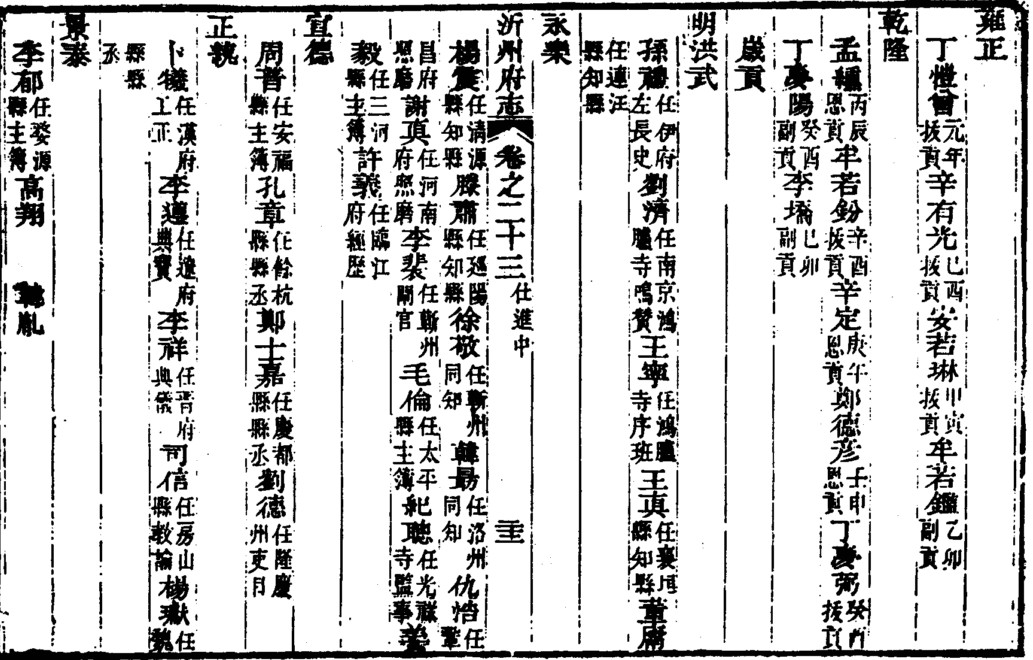 雍正
丁愷曾元年拔貢 辛有光己酉拔貢 安若琳甲寅拔貢 牟若鑑乙卯副貢
乾隆
孟 丙辰恩貢 牟若鈖辛酉拔貢 辛定庚午恩貢 鄭德彥壬申恩貢 丁慶弼癸酉拔貢
丁慶陽癸酉副貢 李 己卯副貢
歲貢
明洪武
孫禮任伊府左長史 劉濟任南京鴻臚寺鳴贊 王寧任鴻臚寺序班 王真任襄垣縣知縣 董庸
任連江縣知縣
永樂
沂州府志 卷之二十三 仕進中 三十三
楊賓任清源縣知縣 滕肅任 陽縣知縣 徐敬任蘄州同知 韓昜任洛州同知 仇浩任鞏
昌府照磨 謝真任河南府照磨 李裴任蘄州閘官 毛倫任太平縣主簿 紀聰任光祿寺監事 姜
毅任三河縣主簿 許義任臨江府經歷
宣德
周晋任安福縣主簿 孔章任餘杭縣縣丞 鄭士嘉任慶都縣縣丞 劉德任隆慶州吏目
正統
卜 任漢府工正 李遵任遼府典寶 李祥任晋府典儀 司信任房山縣教諭 楊獻任魏
縣縣丞
景泰
李郁任婺源縣主簿 高翔 韓胤